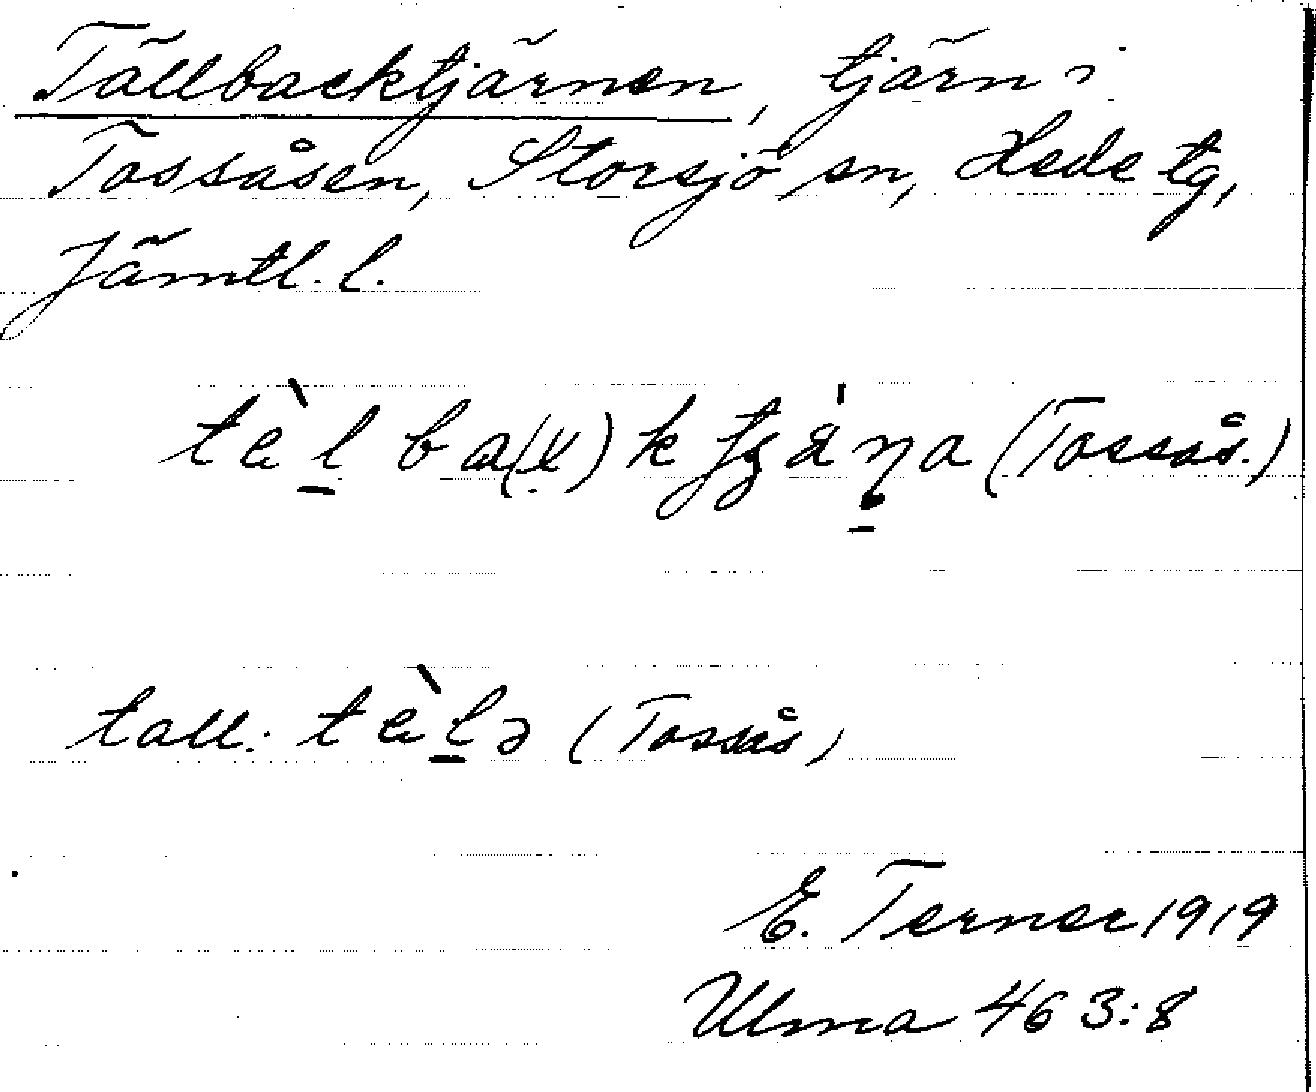 Tällbacktjärnen, tjärn i
Tossåsen, Storsjö sn, Hede tg,
Jämtl. l.
(Tossås.)
tall: (Tossås)
E. Terner 1919
Ulma 463:8